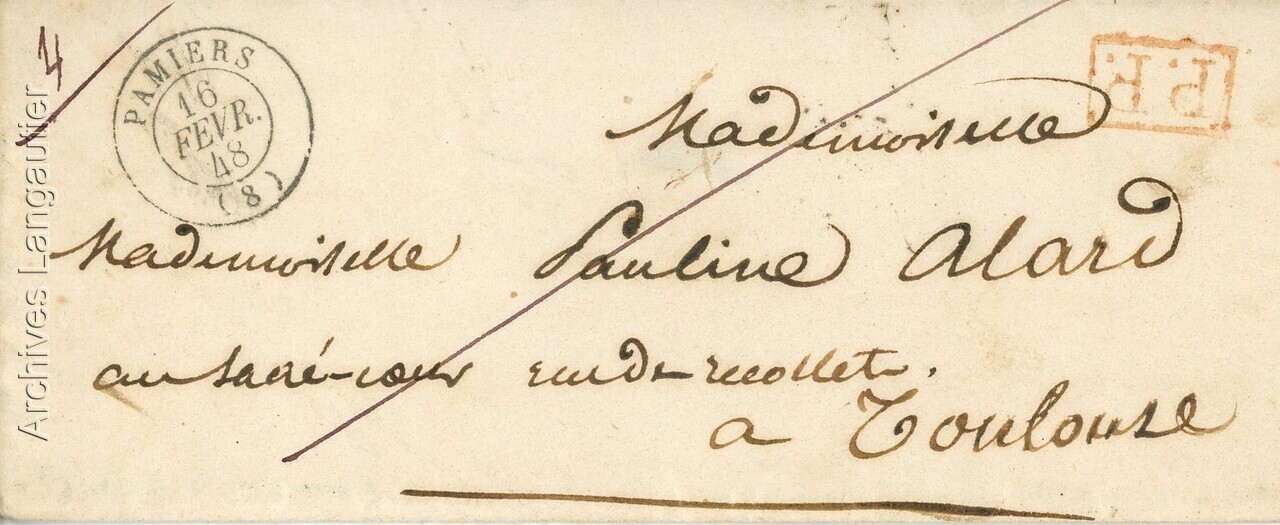 4
PAMIERS
16
FEVR.
48
(8)
P.P.
Mademoiselle
Mademoiselle Pauline Alard
au sacré-cœur rue de recollets.
a Toulouse
Archives Langautier